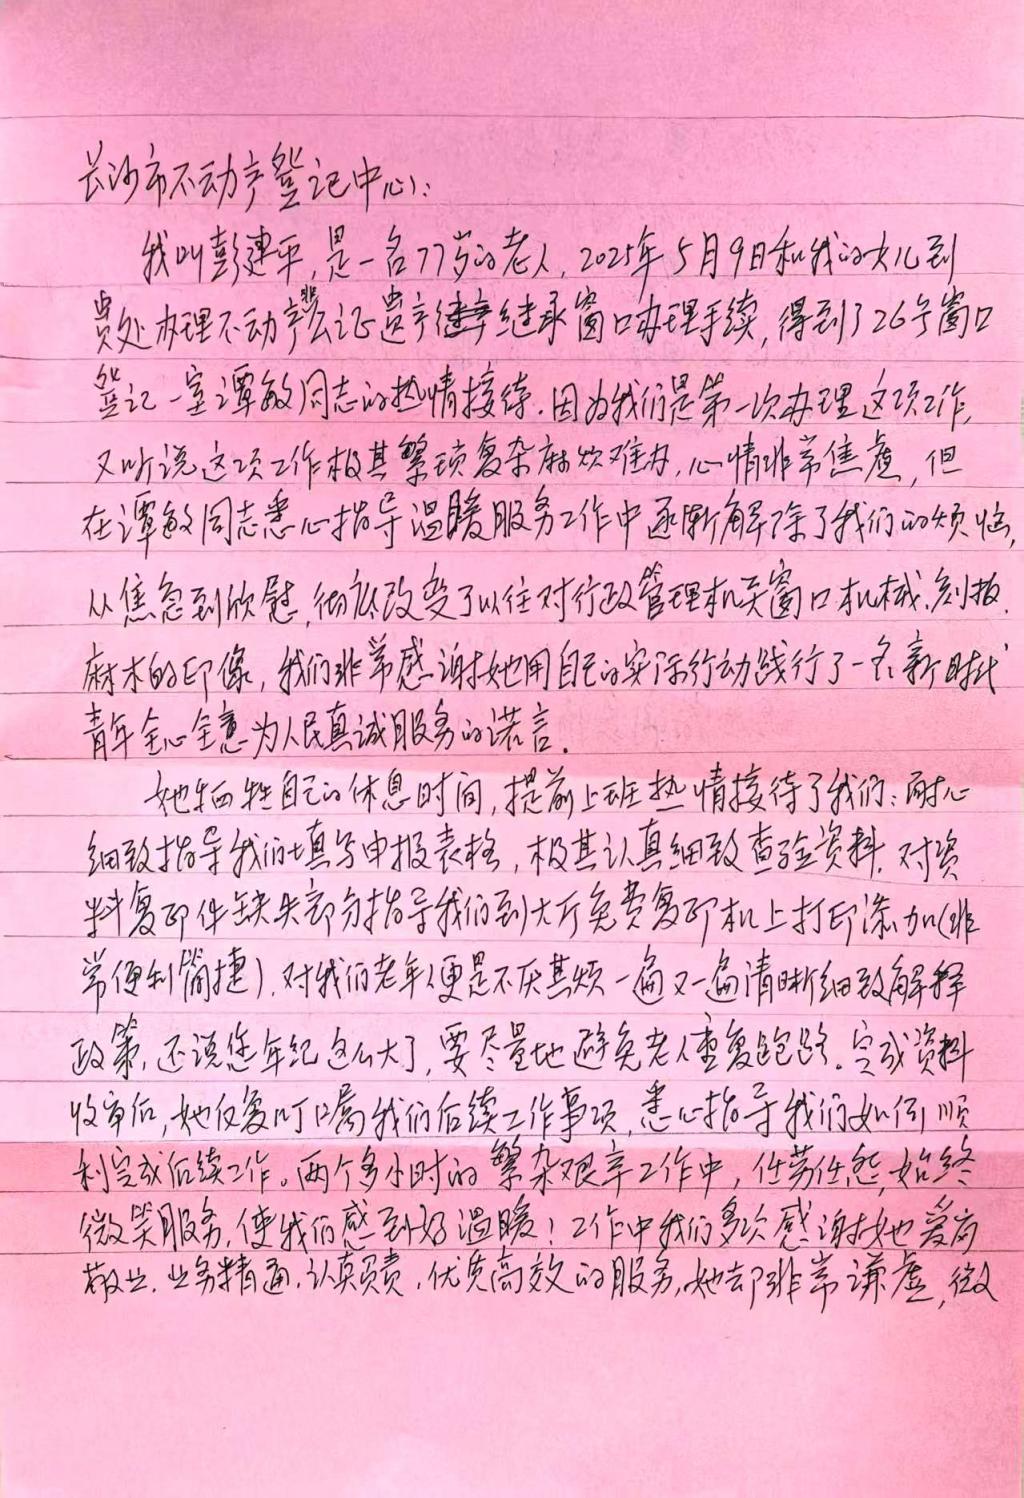 长沙市不动产登记中心:
我叫彭建平,是一名77岁的老人,2025年5月9日和我的女儿到
贵处办理不动产非公证遗产继承窗口办理手续,得到了26号窗口
登记一室谭敏同志的热情接待.因为我们是第一次办理这项工作,
又听说这项工作极其繁琐复杂麻烦难办,心情非常焦虑,但
在谭敏同志悉心指导温暖服务工作中逐渐解除了我们的烦恼,
从焦急到欣慰,彻底改变了以往对行政管理机关窗口机械、刻板、
麻木的印像,我们非常感谢她用自己的实际行动践行了一名新时代
青年全心全意为人民真诚服务的诺言.
她牺牲自己的休息时间,提前上班热情接待了我们;耐心
细致指导我们填写申报表格,极其认真细致查验资料.对资
料复印件缺失部分指导我们到大厅免费复印机上打印添加(非
常便利简捷).对我们老年人更是不厌其烦一遍又一遍清晰细致解释
政策,还说您年纪这么大了,要尽量地避免老人重复跑路.完成资料
收审后,她反复叮嘱我们后续工作事项,悉心指导我们如何顺
利完成后续工作。两个多小时的繁杂艰辛工作中,任劳任怨,始终
微笑服务,使我们感到好温暖!工作中我们多次感谢她爱岗
敬业.业务精通.认真负责.优先高效的服务,她却非常谦虚,微